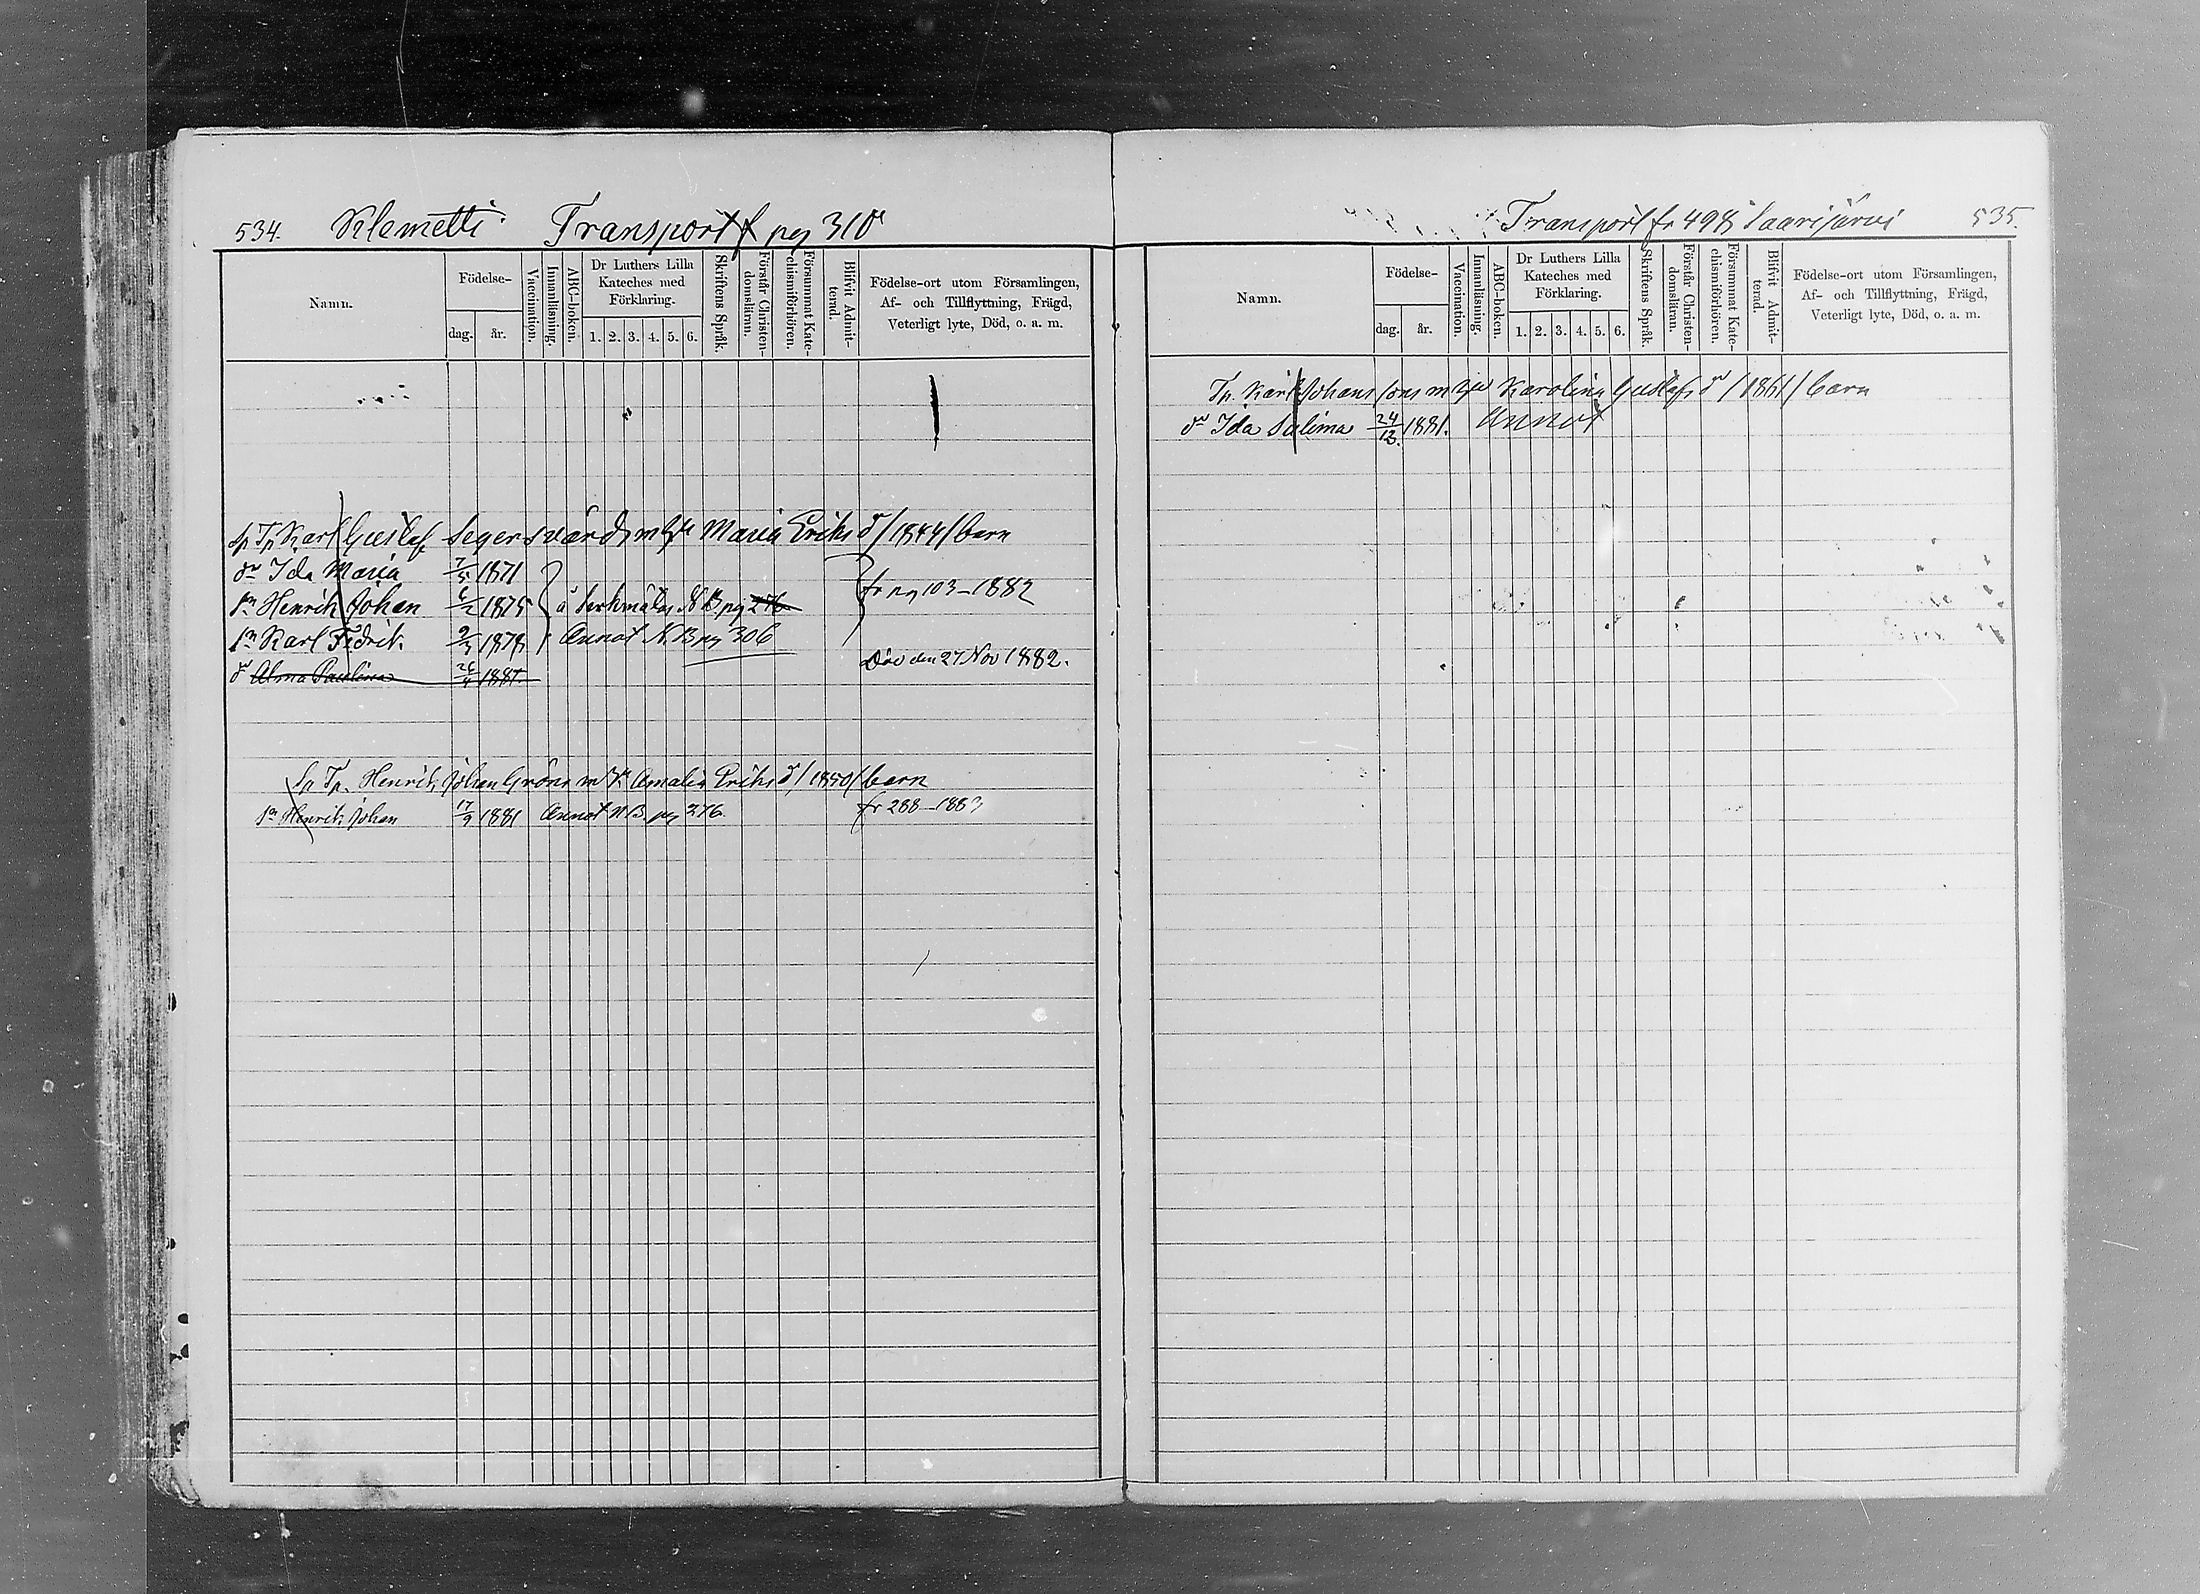 534. Klemetti. Transport f pg 310
Namn.
Födelse-
dag. år.
Vaccination.
Innanläsning.
ABC-boken.
Dr Luthers Lilla Kateches med Förklaring.
1. 2. 3. 4. 5. 6.
Skriftens Språk.
Förstår Christendomsläran.
Försummat Katechismiförhören.
Blifvit Admitterad.
Födelse-ort utom Församlingen,
Af- och Tillflyttning, Frägd,
Veterligt lyte, Död, o. a. m.
Karl Gustaf Segersvärds m h Maria Eriks dr /1844/ barn
dr Ida Maria 7/5 1871
sn Henrik Johan 6/2 1875 å N.B. pg 276 fr pg 103-1882
sn Karl Fredrik. 9/3 1878 Annot N.B pg 306
dr Alma Paulina 26/4 1881. Död den 27 Nov 1882.
Tp. Henrik Johan Gröns m h Amalia Eriks dr /1850/ barn
sn Henrik Johan 17/9 1881 Annot N.B. pg 276. fr 288-1883
Transport fr 498 Saarijärvi 535.
Namn.
Födelse-
dag. år.
Vaccination.
Innanläsning.
ABC-boken.
Dr Luthers Lilla Kateches med Förklaring.
1. 2. 3. 4. 5. 6.
Skriftens Språk.
Förstår Christendomsläran.
Försummat Katechismiförhören.
Blifvit Admitterad.
Födelse-ort utom Församlingen,
Af- och Tillflyttning, Frägd,
Veterligt lyte, Död, o. a. m.
Tp. Karl Johans sons m Karolina Gustafs dr /1861/ barn
dr Ida Salima 24/12. 1881. Annot